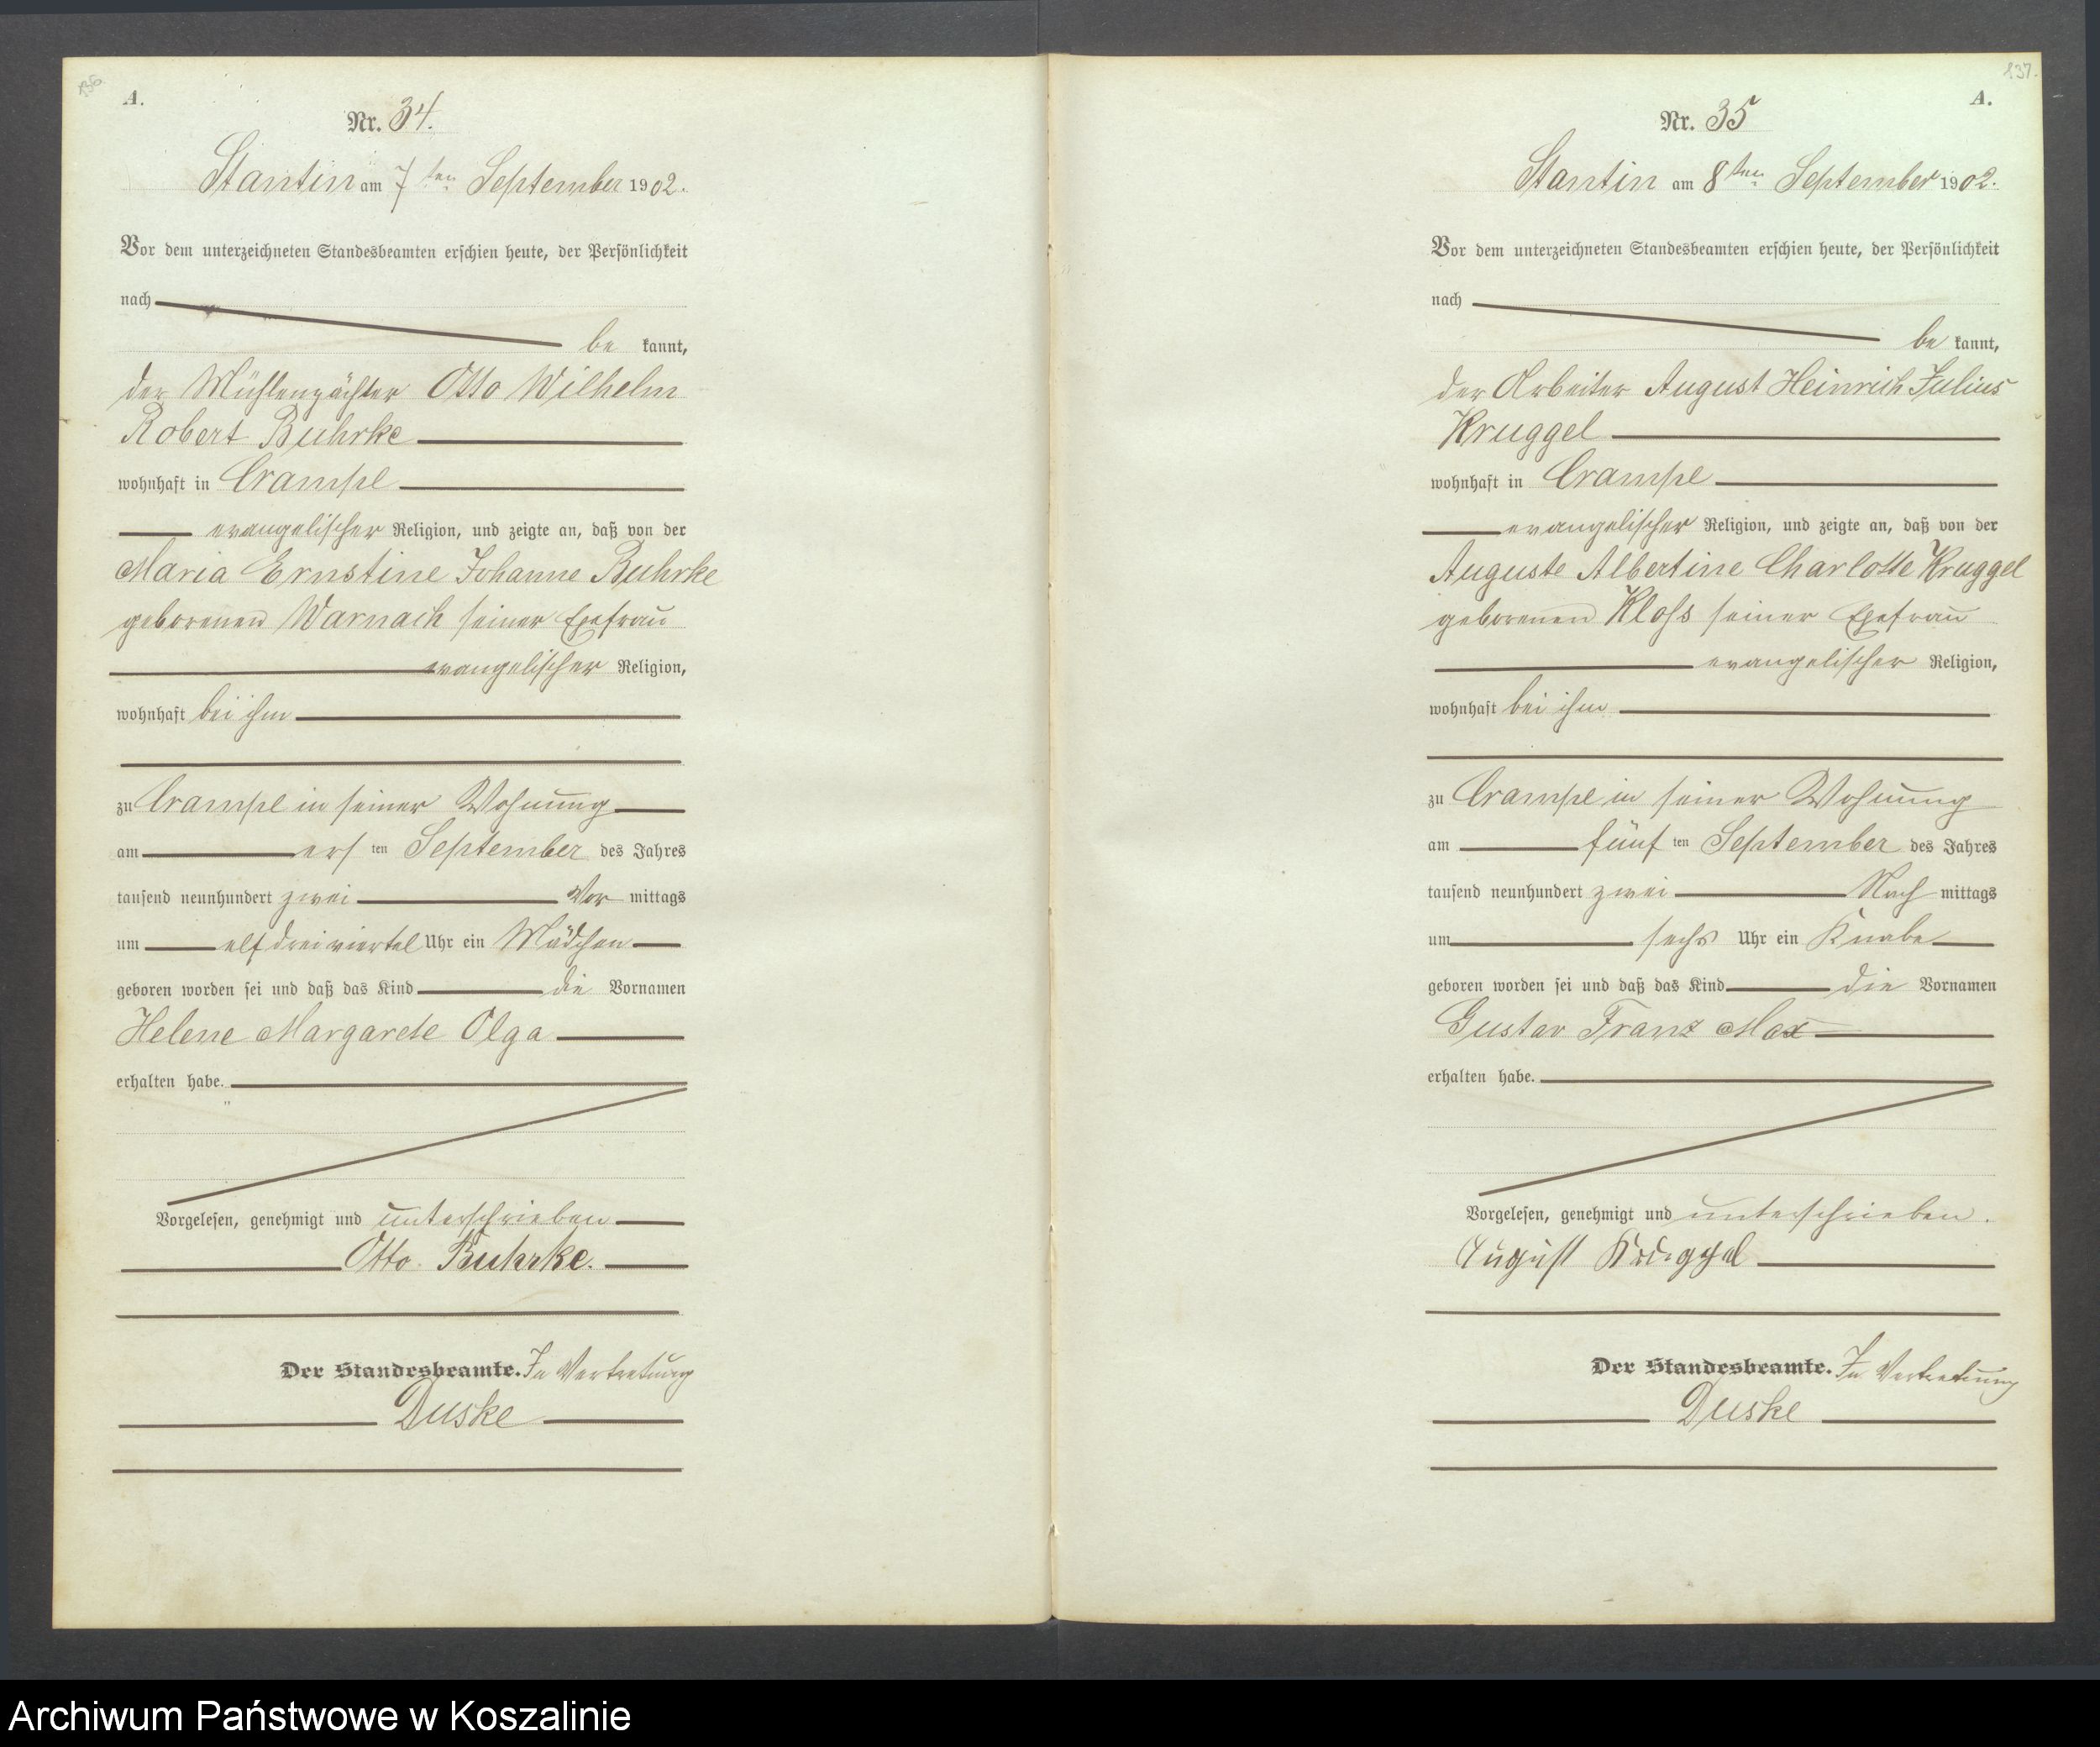 136.
A.
Nr. 34.
Stantin am 7ten September 1902.
Vor dem unterzeichneten Standesbeamten erschien heute, der Persönlichkeit
nach
be kannt,
der Mühlenpächter Otto Wilhelm
Robert Buhrke
wohnhaft in Crampe
evangelischer Religion, und zeigte an, daß von der
Maria Ernstine Johanne Buhrke
geborenen Warnach seiner Ehefrau
evangelischer Religion,
wohnhaft bei ihm
zu Crampe in seiner Wohnung
am ersten September des Jahres
tausend neunhundert zwei Vor mittags
um elf dreiviertel Uhr ein Mädchen
geboren worden sei und daß das Kind die Vornamen
Helene Margarete Olga
erhalten habe.
Vorgelesen, genehmigt und unterschrieben
Otto Buhrke.
Der Standesbeamte. In Vertretung
Duske
137.
A.
Nr. 35
Stantin am 8ten September 1902.
Vor dem unterzeichneten Standesbeamten erschien heute, der Persönlichkeit
nach
be kannt,
der Arbeiter August Heinrich Julius
Kruggel
wohnhaft in Crampe
evangelischer Religion, und zeigte an, daß von der
Auguste Albertine Charlotte Kruggel
geborenen Kloss seiner Ehefrau
evangelischer Religion,
wohnhaft bei ihm
zu Crampe in seiner Wohnung
am fünften September des Jahres
tausend neunhundert zwei Nach mittags
um sechs Uhr ein Knabe
geboren worden sei und daß das Kind die Vornamen
Gustav Franz Max
erhalten habe.
Vorgelesen, genehmigt und unterschrieben.
August Kruggel
Der Standesbeamte. In Vertretung
Duske
Archiwum Państwowe w Koszalinie